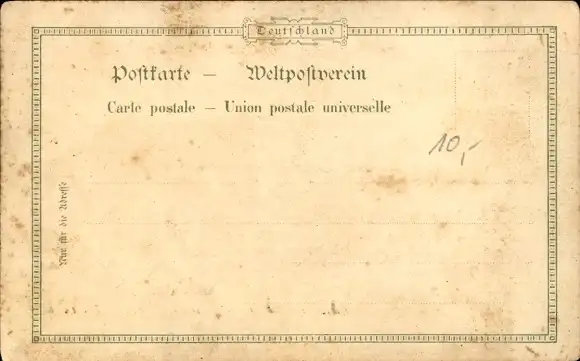 Deutschland
Postkarte — Weltpostverein
Carte postale — Union postale universelle
10,-
Nur für die Adresse